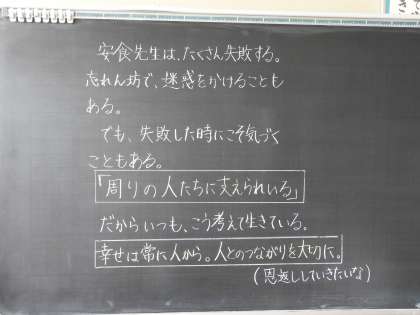 安食先生は、たくさん失敗する。
忘れん坊で、迷惑をかけることも
ある。
でも、失敗した時にこそ気づく
こともある。
「周りの人たちに支えられいる」
だからいつも、こう考えて生きている。
幸せは常に人から。人とのつながりを大切に。
(恩返ししていきたいな)